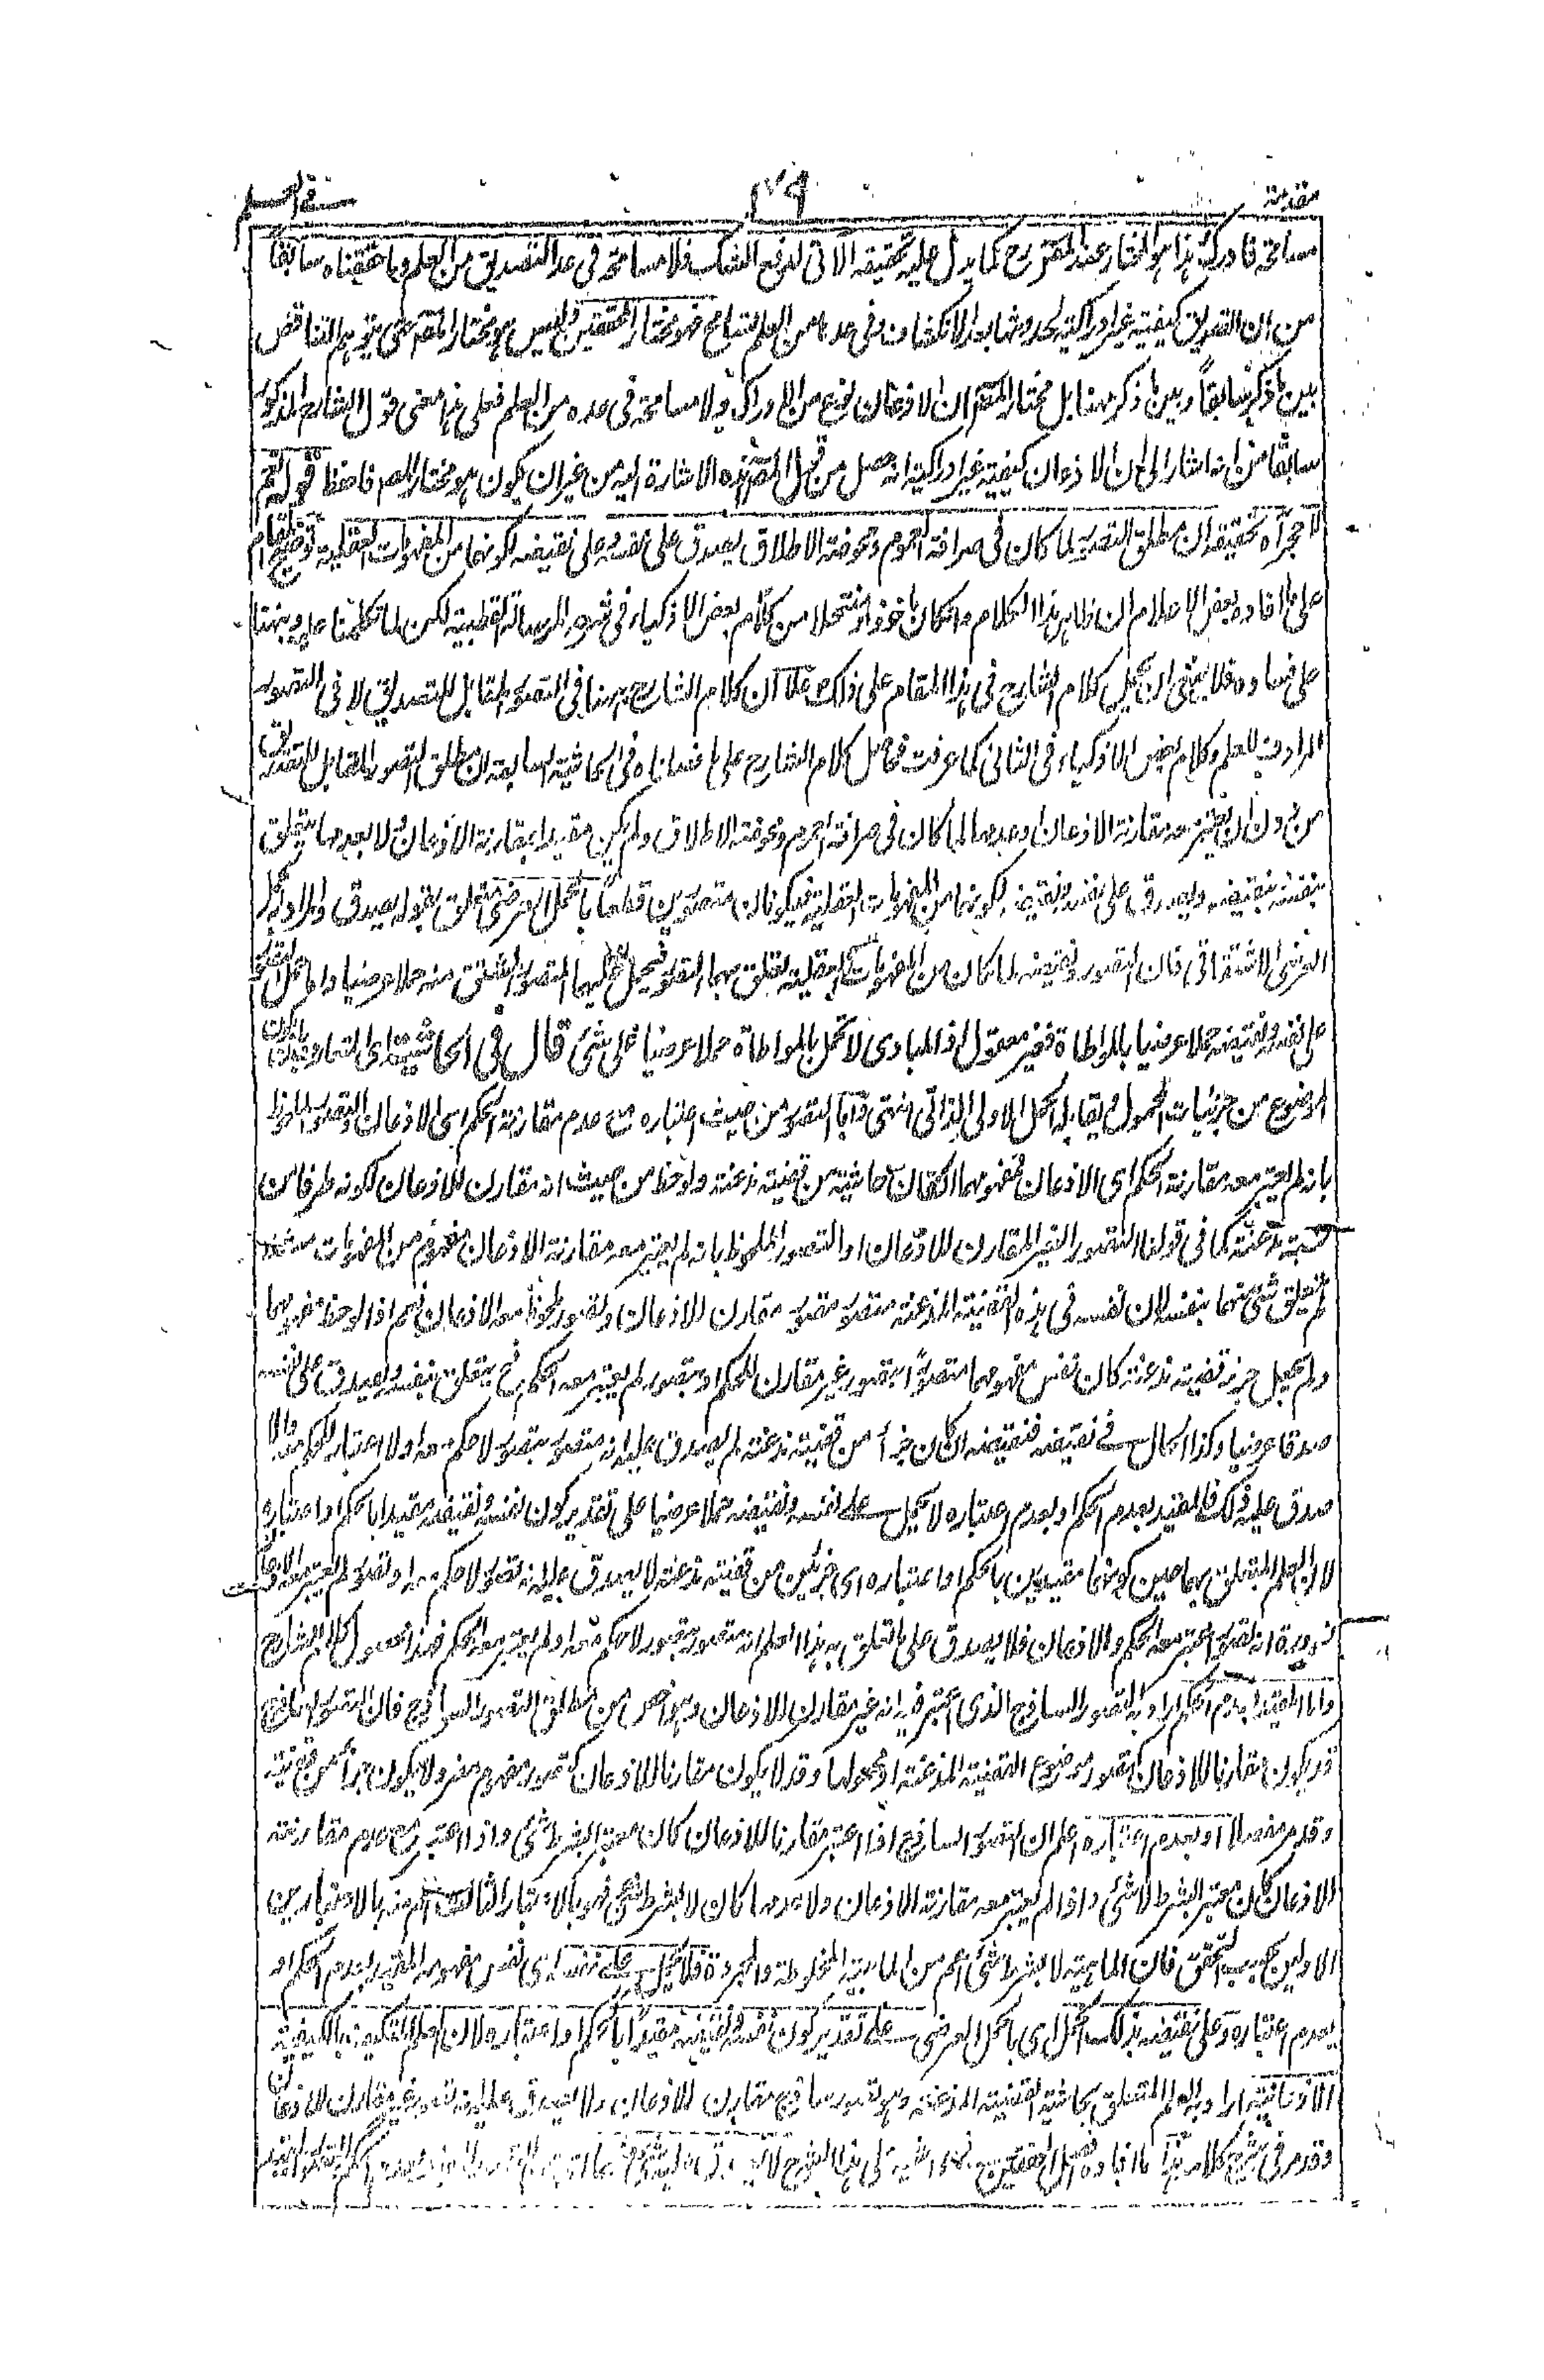 مقدمة
مسامحة فادرك هذا هو المختار عند المصنف رح كما يدل عليه تحقيقه الآتى لدفع الشك فلا مسامحة فى عد التصديق من العلم وما حققناه سابقاً
من ان التصديق كيفية غير ادراكية لحدوثها بعد الانكشاف وفى عدها من العلم تسامح فهو مختار المحققين وليس هو مختار المصنف حتى يتوهم التناقض
بين ما ذكر سابقاً وبين ما ذكر ههنا بل مختار المصنف ان الاذعان نوع من الادراك ولا مسامحة فى عده من العلم فعلى هذا معنى قول الشارح المذكور
سابقا من انه اشار الى ان الاذعان كيفية غير ادراكية انه حصل من قبل المصنف هذه الاشارة اليه من غير ان يكون هو مختار المصنف فاحفظ قوله نعم
لا حجر آه تحقيقه ان مطلق التصور لما كان فى صرافة العموم ومحوضة الاطلاق يصدق على نفسه وعلى نقيضه لكونهما من المفهومات العقلية توضيح المقام
على ما افاده بعض الاعلام ان ظاهر هذا الكلام وان كان ماخوذا ومنتحلا من كلام بعض الاذكياء فى شرح الرسالة القطبية لكن لما تكلمنا عليه ونبهنا
على فساده فلا ينبغى ان يحمل كلام الشارح فى هذا المقام على ذلك علا ان كلام الشارح ههنا فى التصور المقابل للتصديق لا فى التصور
المرادف للعلم وكلام بعض الاذكياء فى الثانى كما عرفت فحاصل كلام الشارح على ما فصلناه فى الحاشية السابقة ان مطلق التصور المقابل للتصديق
من دون ان يعتبر معه مقارنة الاذعان او عدمها لما كان فى صرافة العموم ومحوضة الاطلاق ولم يكن مقيدا بمقارنة الاذعان ولا بعدمها يتعلق
بنفسه بنقيضه ويصدق على نفسه ونقيضه لكونهما من المفهومات العقلية فيكونان متصورين قطعاً بالحمل العرضى متعلق بقوله يصدق والمراد به الحمل
العرضى الاشتقاقى فان التصور ونقيضه لما كان من المفهومات العقلية يتعلق بهما التصور فيحمل عليهما المتصور المشتق منه حملا عرضيا واما حمل التصور
على نفسه ونقيضه حملا عرضيا بالمواطاة فغير معقول اذ المبادى لا تحمل بالمواطاة حملا عرضيا على شئ قال فى الحاشية اى المتعارف ما يكون
الموضوع من جزئيات المحمول ويقابله الحمل الاولى الذاتى انتهى واما التصور من حيث اعتباره مع عدم مقارنة الحكم اى الاذعان او التصور الملحوظ
بانه لم يعتبر معه مقارنة الحكم اى الاذعان فمفهومهما ان كان حاشية من قضية مذعنة ولوحظ من حيث انه مقارن للاذعان لكونه طرفا من
نسبة مذعنة كما فى قولنا التصور الغير المقارن للاذعان او التصور الملحوظ بانه لم يعتبر معه مقارنة الاذعان مفهوم من المفهومات
لم يتعلق شئ منهما بنفسه لان نفسه فى هذه القضية المذعنة متصور بتصور مقارن للاذعان وتصور ملحوظ معه الاذعان نعم اذا لوحظ مفهومهما
ولم يجعل جزء قضية مذعنة كان نفس مفهومهما متصوراً بتصور غير مقارن للحكم او بتصور لم يعتبر معه الحكم فح يتعلق بنفسه ويصدق على نفسه
صدقا عرضيا وكذا الحال فى نقيضه فنقيضه ان كان جزأ من قضية مذعنة لم يصدق عليه انه متصور بتصور لا حكم معه او لا اعتبار للحكم معه والا
صدق عليه ذلك فالمقيد بعدم الحكم او بعدم اعتباره لا يحمل على نفسه ونقيضه حملا عرضيا على تقدير كون نفسه ونقيضه مقيدا بالحكم او اعتباره
لان العلم المتعلق بهما حين كونهما مقيدين بالحكم او اعتباره اى جزئين من قضية مذعنة لا يصدق عليه انه تصور لا حكم معه او تصور لم يعتبر معه الاذعان
ضرورة انه تصور اعتبر معه الحكم والاذعان فلا يصدق على ما تعلق به هذا العلم انه متصور بتصور لا حكم معه او لم يعتبر معه الحكم فهذا محصول كلام الشارح
واما المقيد بعدم الحكم اراد به التصور الساذج الذى يعتبر فيه انه غير مقارن للاذعان وهو اخص من مطلق التصور الساذج فان التصور الساذج
قد يكون مقارنا للاذعان كتصور موضوع القضية المذعنة او محمولها وقد لا يكون مقارنا للاذعان كتصور مفهوم مفرد لا يكون جزأ من قضية
وقد مر مفصلا او بعدم اعتباره اعلم ان التصور الساذج اذا اعتبر مقارنا للاذعان كان معتبرا بشرط شئ واذا اعتبر مع عدم مقارنته
الاذعان كان معتبرا بشرط لا شئ واذا لم يعتبر معه مقارنة الاذعان ولا عدمها كان لا بشرط شئ فهو بالاعتبار الثالث اعم منه بالاعتبارين
الاولين بحسب التحقق فان الماهية لا بشرط شئ اعم من الماهية المخلوطة والمجردة فلا يحمل على نفسه اى نفس مفهومه المقيد بعدم الحكم او
بعدم اعتباره وعلى نقيضه بذلك الحمل اى بالحمل العرضى على تقدير كون نفسه ونقيضه مقيدا بالحكم او اعتباره لان العلم المتكيف بالكيفية
الاذعانية اراد به العلم المتعلق بحاشية القضية المذعنة وهو تصور ساذج مقارن للاذعان ولا يصدق عليه انه تصور غير مقارن للاذعان
وقد مر فى شرح كلامه هذا ما افاده افضل المحققين